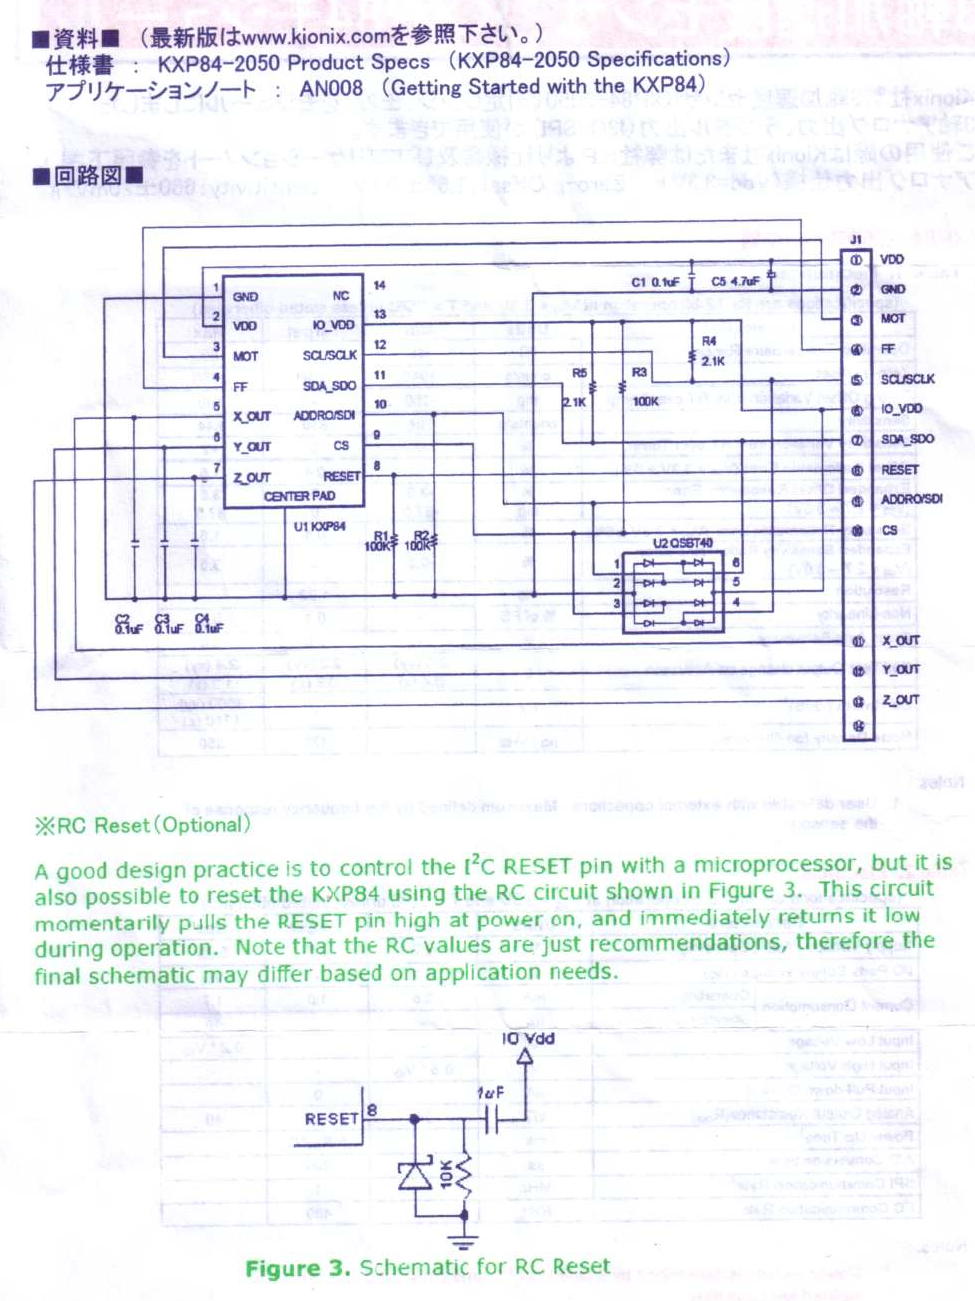 ■資料■ (最新版はwww.kionix.comを参照下さい。)
仕様書 : KXP84-2050 Product Specs (KXP84-2050 Specifications)
アプリケーションノート : AN008 (Getting Started with the KXP84)
■回路図■
J1
1 GND NC 14
2 VDD IO_VDD 13
3 MOT SCL/SCLK 12
4 FF SDA_SDO 11
5 X_OUT ADDRO/SDI 10
6 Y_OUT CS 9
7 Z_OUT RESET 8
CENTER PAD
U1 KXP84
C1 0.1uF C5 4.7uF
R4
2.1K
R5
2.1K
R3
100K
R1
100K
R2
100K
C2
0.1uF
C3
0.1uF
C4
0.1uF
U2 QSBT40
1 6
2 5
3 4
① VDD
② GND
③ MOT
④ FF
⑤ SCL/SCLK
⑥ IO_VDD
⑦ SDA_SDO
⑧ RESET
⑨ ADDRO/SDI
⑩ CS
⑪ X_OUT
⑫ Y_OUT
⑬ Z_OUT
⑭
※RC Reset(Optional)
A good design practice is to control the I²C RESET pin with a microprocessor, but it is
also possible to reset the KXP84 using the RC circuit shown in Figure 3. This circuit
momentarily pulls the RESET pin high at power on, and immediately returns it low
during operation. Note that the RC values are just recommendations, therefore the
final schematic may differ based on application needs.
IO Vdd
1uF
RESET 8
10K
Figure 3. Schematic for RC Reset